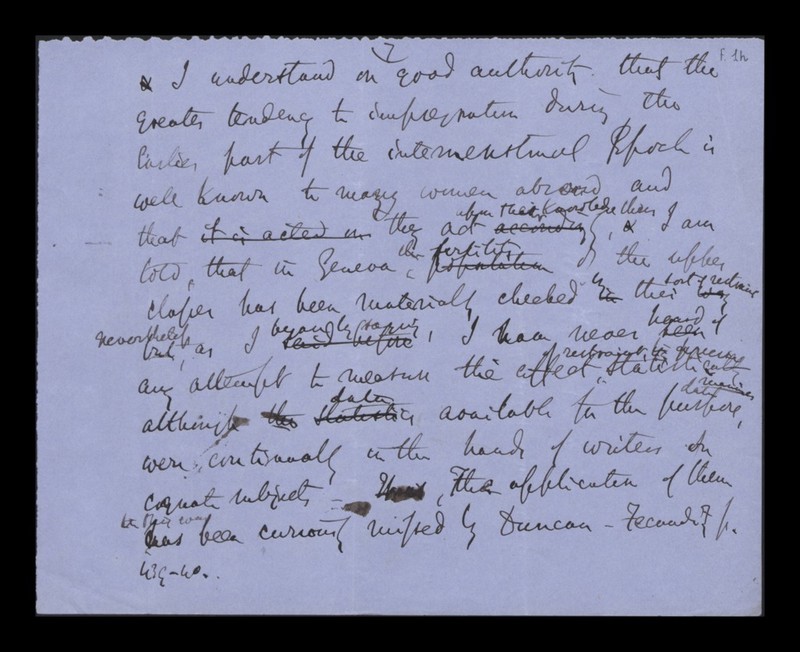 7
F. 1h
I understand on good authority that the
greater tendency to impregnation during the
earlier part of the intermenstrual Epoch is
well known to many women abroad and
upon their knowledge
that it is acted on they act accordingly, I am
the fertility
told, that in Geneva population of the upper
sort of restraint
classes has been materially checked in this way
nevertheless beyond heard of
but, as I said before, I have never seen
restraint
any attempt to measure the effect statistically
data
although the statistics available for the purpose,
were continually in the hands of writers on
cognate subjects - The application of them
in this way
has been curiously missed by Duncan - Fecundity p.
439-40.